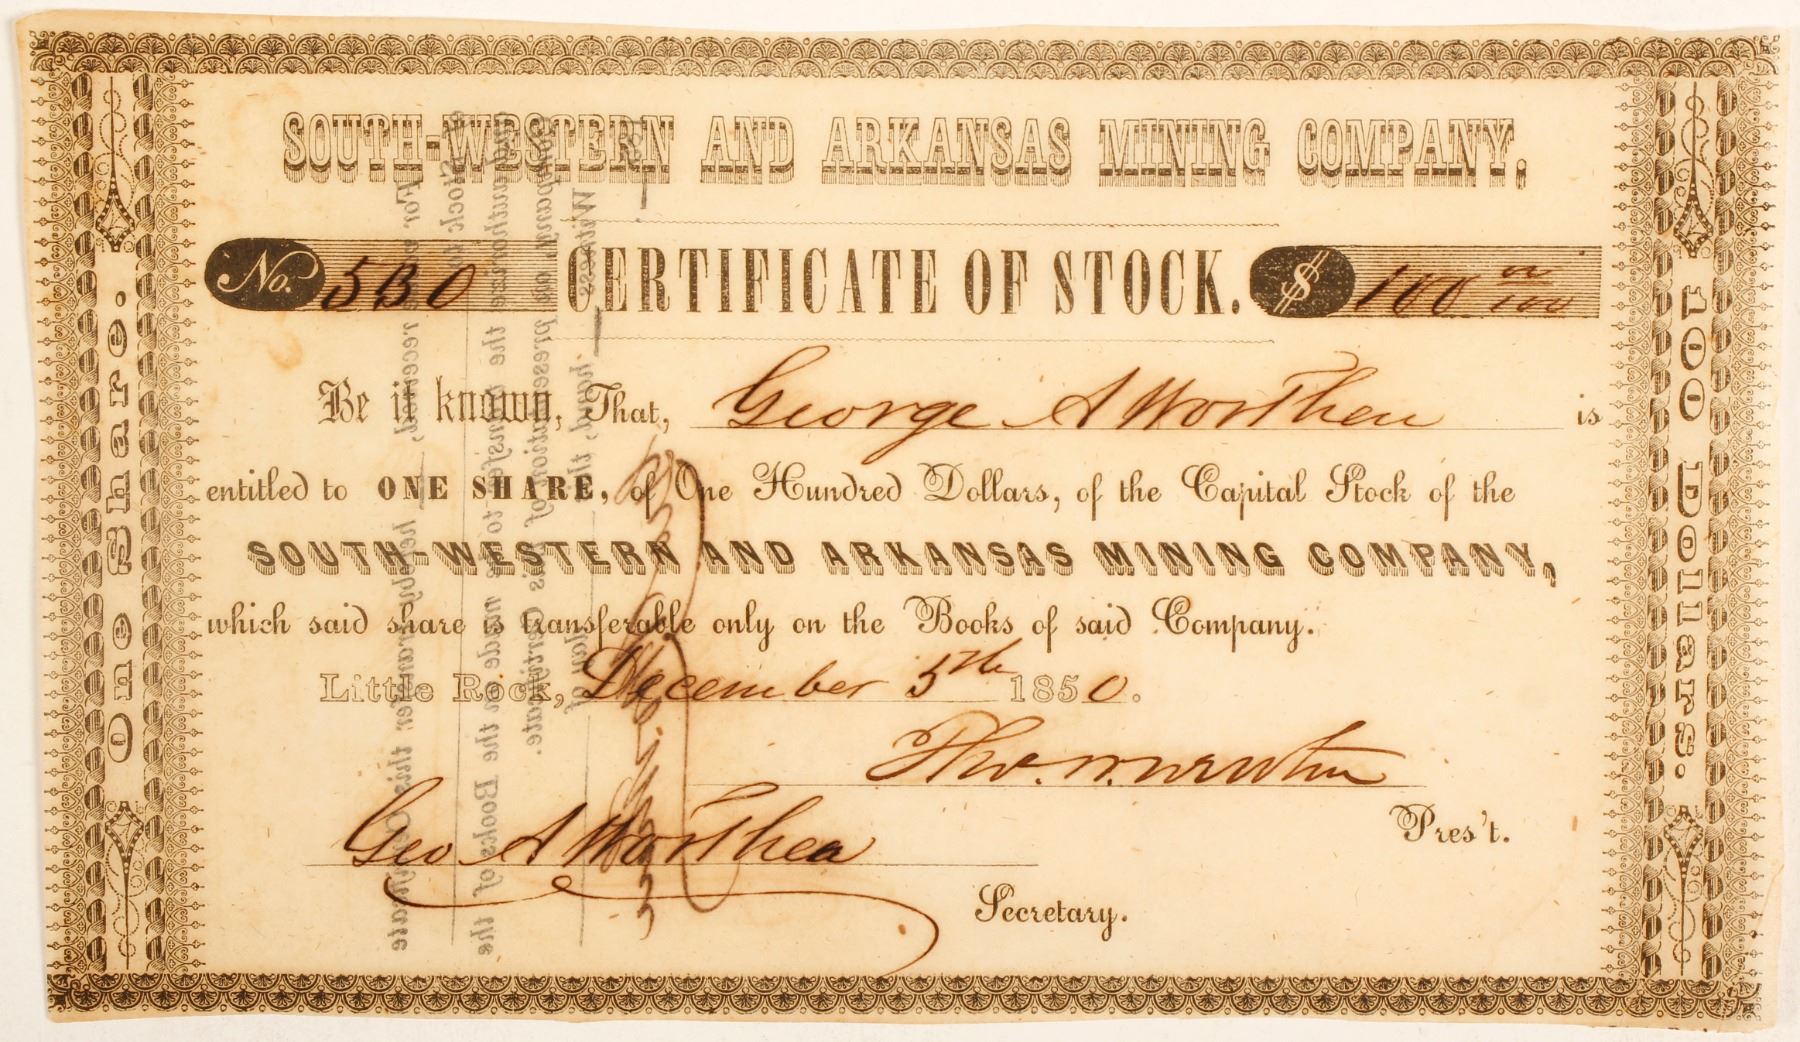 SOUTH-WESTERN AND ARKANSAS MINING COMPANY.
No. 530 CERTIFICATE OF STOCK. $ 100 00/100
Be it known, That, George A Worthen is
entitled to ONE SHARE, of One Hundred Dollars, of the Capital Stock of the
SOUTH-WESTERN AND ARKANSAS MINING COMPANY,
which said share is transferable only on the Books of said Company.
Little Rock, December 5th 1850.
Tho. W. Newton
Pres't.
Geo A Worthen
Secretary.
One Share.
100 Dollars.
For value received, hereby transfer this Certificate
of Stock to
and authorize the transfer to be made on the Books of the
Company on presentation of this Certificate.
Witness hand, this day of
185